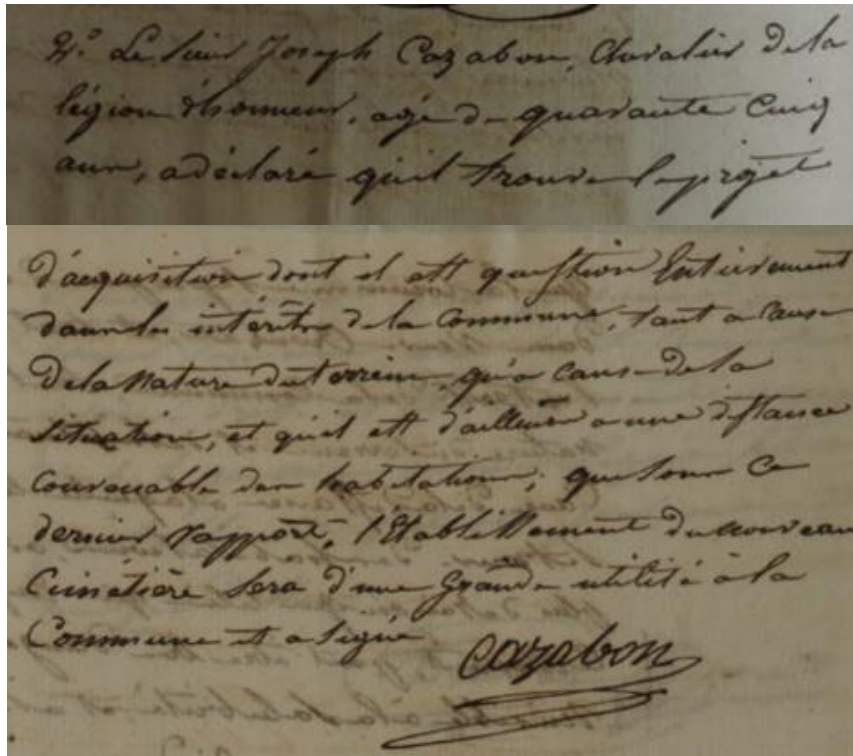 2.° Le Sieur Joseph Cazabon, Chevalier de la
légion d'honneur, agé de quarante Cinq
ans, a déclaré qu'il trouve le projet
d'acquisition dont il est question Entierement
dans les intérêts de la Commune, tant a cause
de la Nature du terrein, qu'a cause de la
situation, et qu'il est d'ailleurs a une distance
Convenable des habitations; que sous ce
dernier rapport, l'Etablissement du nouveau
Cimetière sera d'une grande utilité à la
Commune et a signé
Cazabon